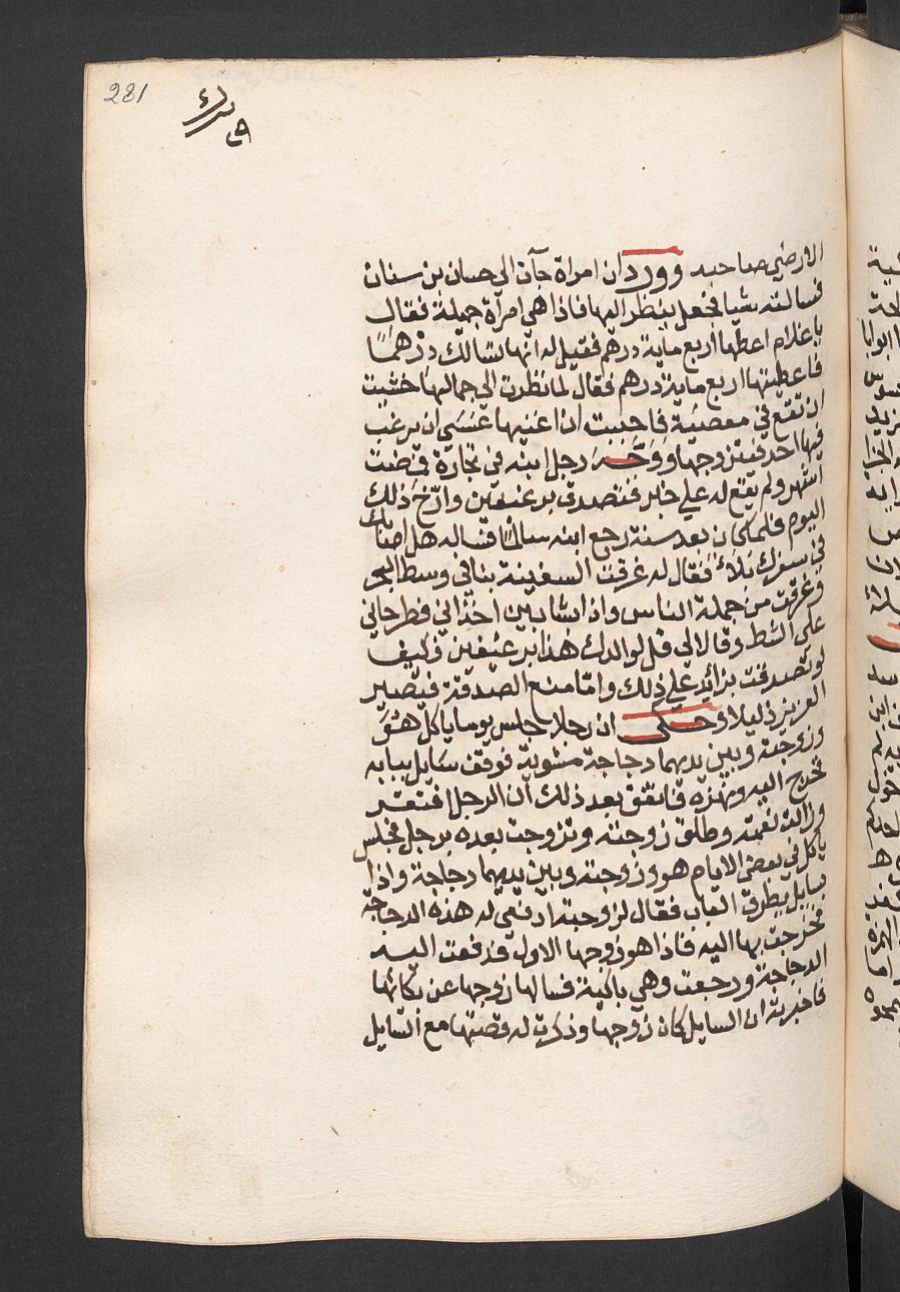 281
الارضي صاحبه وورد ان امراة جآت الي حسان بن سنان
فسالته شيا فجعل ينظر اليها فاذا هي امرآة جميلة فقال
يا غلام اعطها اربع ماية درهم فقيل له انها تسالك درهمًا
فاعطيتها اربع ماية درهم فقال لما نظرت الي جمالها خشيت
ان تقع في معصية فاحببت ان اغنيها عسَي ان يرغب
فيها احد فيتزوجها ووجّه رجل ابنه في تجارة فمضت
اشهر ولم يقع له علي خبر فتصدق برغيفين وارّخ ذلك
اليوم فلما كان بعد سنة رجع ابنه سالمًا فساله هل اصابك
في سفرك بلاء فقال له غرقت السفينة بنا في وسط البحر
وغرقت من جملة الناس واذا بشابين اخذاني فطرحاني
علي الشط وقالا لي قل لوالدك هذا برغيفين فكيف
لو تصدقت بزائد علي ذلك وامّا منع الصدقة فيصير
العزيز ذليلا وحكي ان رجلا جلس يوما ياكل هوَ
وزوجته وبين يديهما دجاجة مشوية فوقف سايل ببابه
فخرج اليه ونهره فاتفق بعد ذلك ان الرجل افتقر
وزالت نعمته وطلق زوجته وتزوجت بعده برجل فجلس
ياكل في بعض الايام هو وزوجته وبين يديهما دجاجة واذا
بسايل يطرق الباب فقال لزوجته ادفعي له هذه الدجاجة
فخرجت بها اليه فاذا هو زوجها الاول فدفعت اليه
الدجاجة ورجعت وهي باكية فسالها زوجها عن بكائها
فاخبرته ان السايل كان زوجها وذكرت له قصتها مع السّايل